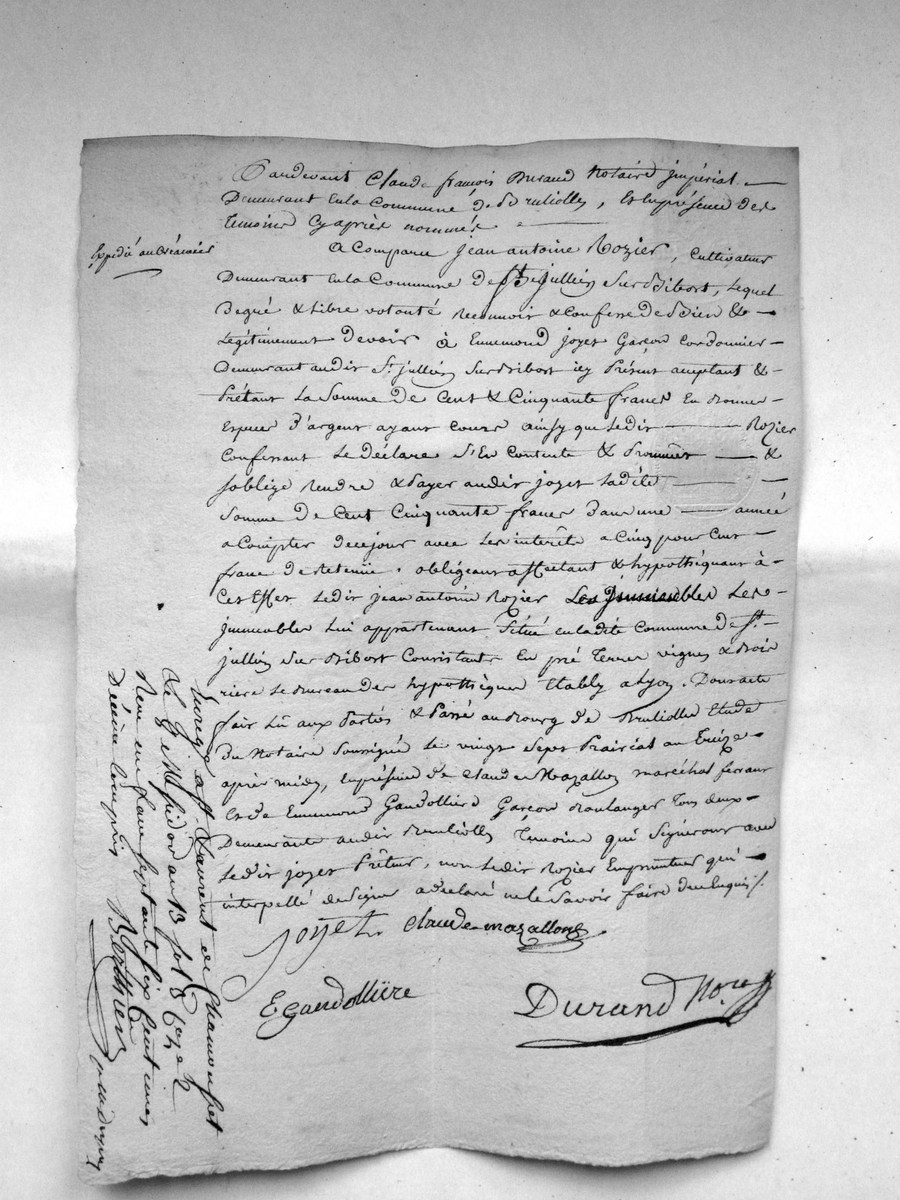 Pardevant Claude françois Durand Notaire jmpérial
Demeurant En la Commune de Brulliolles, et En présence des
temoins Cy après nommés
Expedié au Créancier
a Comparu jean antoine Rozier, Cultivateur
Demeurant En la Commune de St. jullien Sur Bibost, lequel
De gré & libre volonté Reconnoit & Confesse De Bien &
légitimement Devoir à Ennemond joyet Garçon Cordonnier
Demeurant audit St. jullien Sur Bibost icy Présent acceptant &
Prétant La Somme De Cent & Cinquante francs En Bonnes
Especes D'argent ayant Cours ainsy que ledit Rozier
Confessant le Déclare S'En Contente & Promet &
s'oblige Rendre & Payer audit joyet ladite
Somme De Cent Cinquante francs Dans une année
a Compter De ce jour avec les interêts a Cinq pour Cent
franc De Retenüe. obligeant affectant & hypothéquant à
Cet Effet ledit jean antoine Rozier Les Jmmeubles Les
jmmeubles Lui appartenant Situé en ladite Commune de St.
jullien Sur Bibost Consistant En pré terres vignes & Bois
rière le Bureau des hypothèques Etably a Lyon. Dont acte
fait lû aux Parties & Passé au Bourg de Brulliolles Etude
Du Notaire Soussigné le vingt Sept Prairéal an treize
après midy, En présence De Claude Mazallon maréchal ferrant
Et De Ennemond Gaudollière Garçon Boulanger tous deux
Demeurants audit Brulliolles témoins qui Signeront avec
ledit joyet Prêteur, non ledit Rozier Emprunteur qui
interpellé de Signer a declaré ne le Savoir faire De ce Enquis /.
joyet claude mazallon
E Gaudollière
Durand Nore
Enregé a St. Laurent de Chamousset
Le 8 Messidor an 13 fol 8 Case 2
Reçu un franc Septante Six Centimes
Décime Compris Berthier